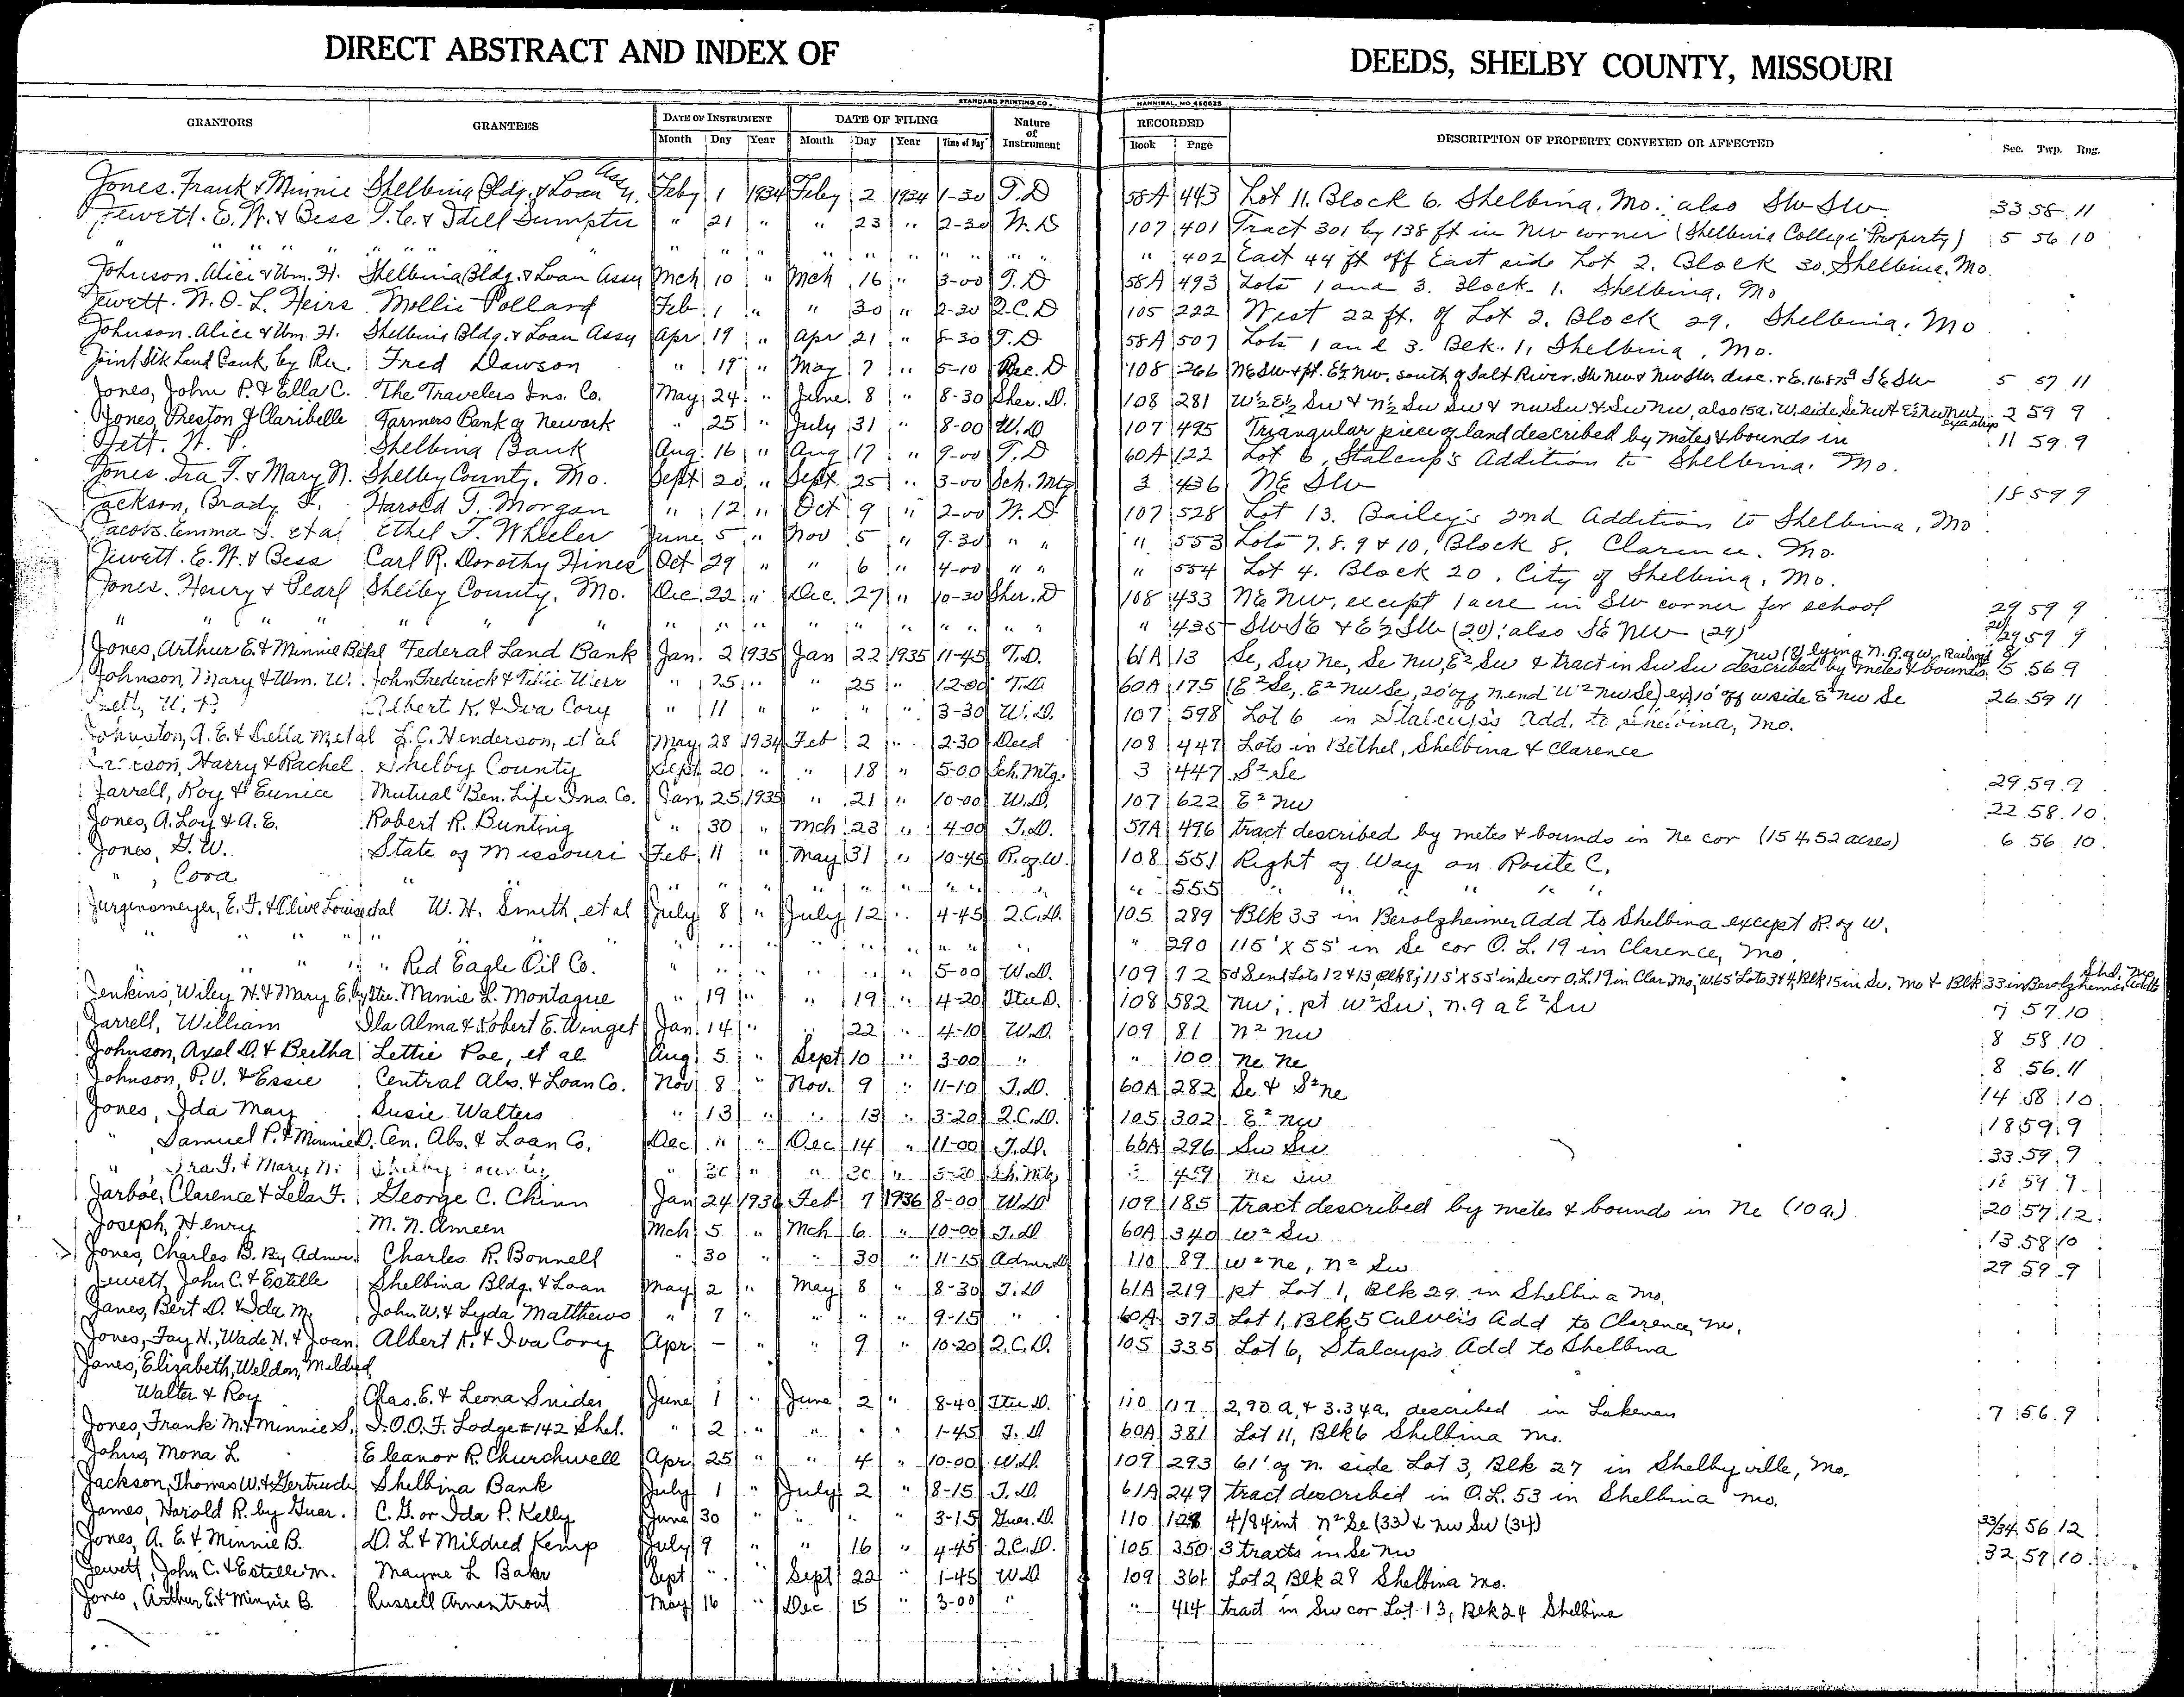 DIRECT ABSTRACT AND INDEX OF DEEDS, SHELBY COUNTY, MISSOURI
STANDARD PRINTING CO., HANNIBAL, MO
GRANTORS GRANTEES DATE OF INSTRUMENT DATE OF FILING Nature of Instrument RECORDED DESCRIPTION OF PROPERTY CONVEYED OR AFFECTED Sec. Twp. Rng.
Month Day Year Month Day Year Time of Day Book Page
Jones. Frank & Minnie Shelbina Bldg. & Loan Ass'n. Feby 1 1934 Feby 2 1934 1-30 T.D 58A 443 Lot 11. Block 6. Shelbina. Mo.; also SW SW 33 58 11
Jewett. E. W. & Bess T. C. & Idell Sumpter " 21 " " 23 " 2-30 W.D 107 401 Tract 301 by 138 ft in NW corner (Shelbina College Property) 5 56 10
" " " " " " " " " " " " " " " " " 402 East 44 ft off East side Lot 2. Block 30, Shelbina, Mo.
Johnson. Alice & Wm. H. Shelbina Bldg. & Loan Assn Mch 10 " Mch 16 " 3-00 T.D 58A 493 Lots 1 and 3. Block 1. Shelbina. Mo
Jewett. W. O. L. Heirs Mollie Pollard Feb 1 " " 30 " 2-30 Q.C.D 105 222 West 22 ft. of Lot 2. Block 29. Shelbina. Mo
Johnson. Alice & Wm. H. Shelbina Bldg. & Loan Assn Apr 19 " Apr 21 " 8-30 T.D 58A 507 Lots 1 and 3. Blk. 1, Shelbina, Mo.
Joint Stk Land Bank, by Rec. Fred Dawson " 19 " May 7 " 5-10 Rec. D 108 266 NE SW & pt. E½ NW, south of Salt River. SW NW & NW SW desc. & E. 16.875a SE SW 5 57 11
Jones, John P. & Ella C. The Travelers Ins. Co. May 24 " June 8 " 8-30 Sher. D. 108 281 W½ E½ SW & N½ SW SW & NW SW & SW NW, also 15a. W. side Se NW & E½ NW NW, 2 59 9
Jones, Preston & Claribelle Farmers Bank of Newark " 25 " July 31 " 8-00 W.D 107 495 Triangular piece of land described by metes & bounds in 11 59 9
Jett. W. P. Shelbina Bank Aug. 16 " Aug 17 " 9-00 T.D 60A 122 Lot 6, Stalcup's Addition to Shelbina. Mo.
Jones. Ira T. & Mary N. Shelby County. Mo. Sept 20 " Sept 25 " 3-00 Sch. Mtg 3 436 NE SW 18 59 9
Jackson, Brady F. Harold T. Morgan " 12 " Oct 9 " 2-00 W.D 107 528 Lot 13. Bailey's 2nd Addition to Shelbina, Mo
Jacobs. Emma J. et al Ethel T. Wheeler June 5 " Nov 5 " 9-30 " " " 553 Lots 7. 8. 9 & 10, Block 8. Clarence. Mo.
Jewett. E. W. & Bess Carl R. Dorothy Hines Oct 29 " " 6 " 4-00 " " " 554 Lot 4. Block 20, City of Shelbina, Mo.
Jones. Henry & Pearl Shelby County, Mo. Dec. 22 " Dec. 27 " 10-30 Sher. D 108 433 NE NW, except 1 acre in SW corner for school 29 59 9
" " " " " " " " " " " " " " 435 SW SE & E½ SW (20); also SE NW (29) 20/29 59 9
Jones, Arthur E. & Minnie B et al Federal Land Bank Jan. 2 1935 Jan 22 1935 11-45 T.D. 61A 13 Se, Sw Ne, Se NW, E² Sw & tract in Sw Sw described by metes & bounds NW (8) lying N. R. of W. Railroad 8/5 56 9
Johnson, Mary & Wm. W. John Frederick & Tillie Wierr " 25 " " 25 " 12-00 T.D. 60A 175 (E² Se, E² NW Se, 20' off N end W² NW Se) ex 10' off W side E² NW Se 26 59 11
Jett, W. P. Albert K. & Iva Cory " 11 " " " " 3-30 W.D. 107 598 Lot 6 in Stalcup's Add. to Shelbina, Mo.
Johnston, A. E. & Della M et al L. C. Henderson, et al May 28 1934 Feb 2 " 2-30 Deed 108 447 Lots in Bethel, Shelbina & Clarence
Harry & Rachel Shelby County Sept 20 " " 18 " 5-00 Sch. Mtg. 3 447 S² Se 29 59 9
Jarrell, Roy & Eunice Mutual Ben. Life Ins. Co. Jan. 25 1935 " 21 " 10-00 W.D. 107 622 E² NW 22 58 10
Jones, A. Loy & A. E. Robert R. Bunting " 30 " Mch 23 " 4-00 T.D. 57A 496 tract described by metes & bounds in Ne cor (154.52 acres) 6 56 10
Jones, G. W. State of Missouri Feb 11 " May 31 " 10-45 R. of W. 108 551 Right of Way on Route C.
", Cora " " " " " " " " " 555 " " " " "
Jurgensmeyer, E. F. & Olive Louise et al W. H. Smith, et al July 8 " July 12 " 4-45 Q.C.D. 105 289 Blk 33 in Berolzheimer Add to Shelbina except R. of W.
" " " " " " " " " " " " " 290 115' X 55' in Se cor O. L. 19 in Clarence, Mo.
" " " " Red Eagle Oil Co. " " " " " " 5-00 W.D. 109 72 Send Lots 12 & 13, Blk 8; 115' X 55' in Se cor O.L. 19 in Clar Mo; W65' Lots 3 & 4, Blk 15 in Mo & Blk 33 in Berolzheimer Addtn
Jenkins, Wiley H. & Mary E. by Stee. Mamie L. Montague " 19 " " 19 " 4-20 Stee D. 108 582 NW; pt W² SW; N. 9 a E² SW 7 57 10
Jarrell, William Ila Alma & Robert E. Winget Jan 14 " " 22 " 4-10 W.D. 109 81 N² NW 8 58 10
Johnson, Axel D. & Bertha Lettie Poe, et al Aug 5 " Sept 10 " 3-00 " " 100 Ne Ne 8 56 11
Johnson, P. V. & Essie Central Abs. & Loan Co. Nov 8 " Nov. 9 " 11-10 T.D. 60A 282 Se & S² Ne 14 58 10
Jones, Ida May Susie Walters " 13 " " 13 " 3-20 Q.C.D. 105 302 E² NW 18 59 9
", Samuel P. & Minnie D. Cen. Abs. & Loan Co. Dec " " Dec 14 " 11-00 T.D. 60A 296 Sw Sw 33 59 9
" Ira T. & Mary N. Shelby County " 30 " " 30 " 5-20 Sch. Mtg. 3 459 Ne Sw 18 59 9
Jarboe, Clarence & Lela F. George C. Chinn Jan 24 1936 Feb 7 1936 8-00 W.D 109 185 tract described by metes & bounds in Ne (10a.) 20 57 12
Joseph, Henry M. N. Ameen Mch 5 " Mch 6 " 10-00 T.D. 60A 340 W² Sw 13 58 10
Jones, Charles B. By Admr. Charles R. Bonnell " 30 " " 30 " 11-15 Admr D 110 89 W² Ne, N² Sw 29 59 9
Jewett, John C. & Estelle Shelbina Bldg. & Loan May 2 " May 8 " 8-30 T.D 61A 219 pt Lot 1, Blk 29 in Shelbina Mo.
Janes, Bert D. & Ida M. John W. & Lyda Matthews " 7 " " " " 9-15 " 60A 373 Lot 1, Blk 5 Culver's Add to Clarence, Mo.
Jones, Fay N., Wade N. & Joan Albert K. & Iva Cory Apr — " " 9 " 10-20 Q.C.D. 105 335 Lot 6, Stalcup's Add to Shelbina
Janes, Elizabeth, Weldon, Mildred,
Walter & Roy Chas. E. & Leona Snider June 1 " June 2 " 8-40 Stee D. 110 117 2.90 a. & 3.34a. described in Lakenan 7 56 9
Jones, Frank M. & Minnie S. I.O.O.F. Lodge #142 Shel. " 2 " " " " 1-45 T.D 60A 381 Lot 11, Blk 6 Shelbina Mo.
Johns, Mona L. Eleanor R. Churchwell Apr 25 " " 4 " 10-00 W.D. 109 293 61' of N. side Lot 3, Blk 27 in Shelbyville, Mo.
Jackson, Thomas W. & Gertrude Shelbina Bank July 1 " July 2 " 8-15 T.D. 61A 249 tract described in O.L. 53 in Shelbina Mo.
James, Harold R. by Guar. C. G. or Ida P. Kelly June 30 " " " " 3-15 Guar. D. 110 128 4/84 int N² Se (33) & NW SW (34) 33/34 56 12
Jones, A. E. & Minnie B. D. L. & Mildred Kemp July 9 " " 16 " 4-45 Q.C.D. 105 350 3 tracts in Se NW 32 57 10
Jewett, John C. & Estelle M. Mayme L Baker Sept " " Sept 22 " 1-45 W.D 109 361 Lot 2 Blk 28 Shelbina Mo.
Jones, Arthur E. & Minnie B. Russell Armentrout May 16 " Dec 15 " 3-00 " " 414 tract in Sw cor Lot 13, Blk 24 Shelbina